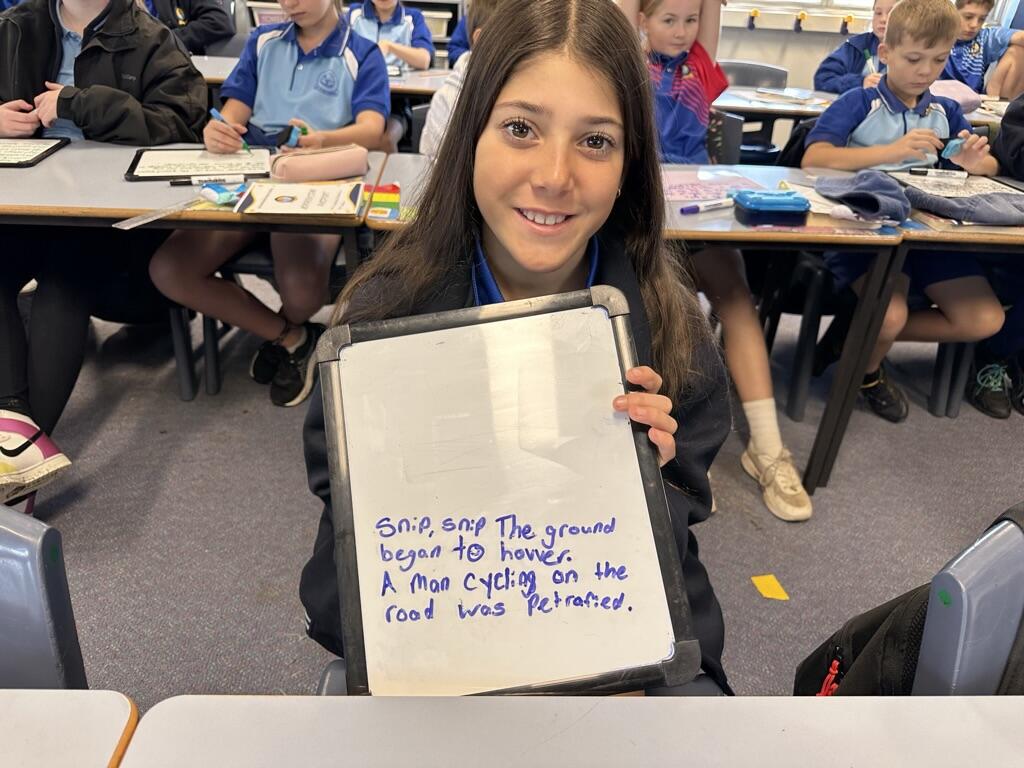 Snip, snip The ground
began to hovver.
A man cycling on the
road was Petrafied.